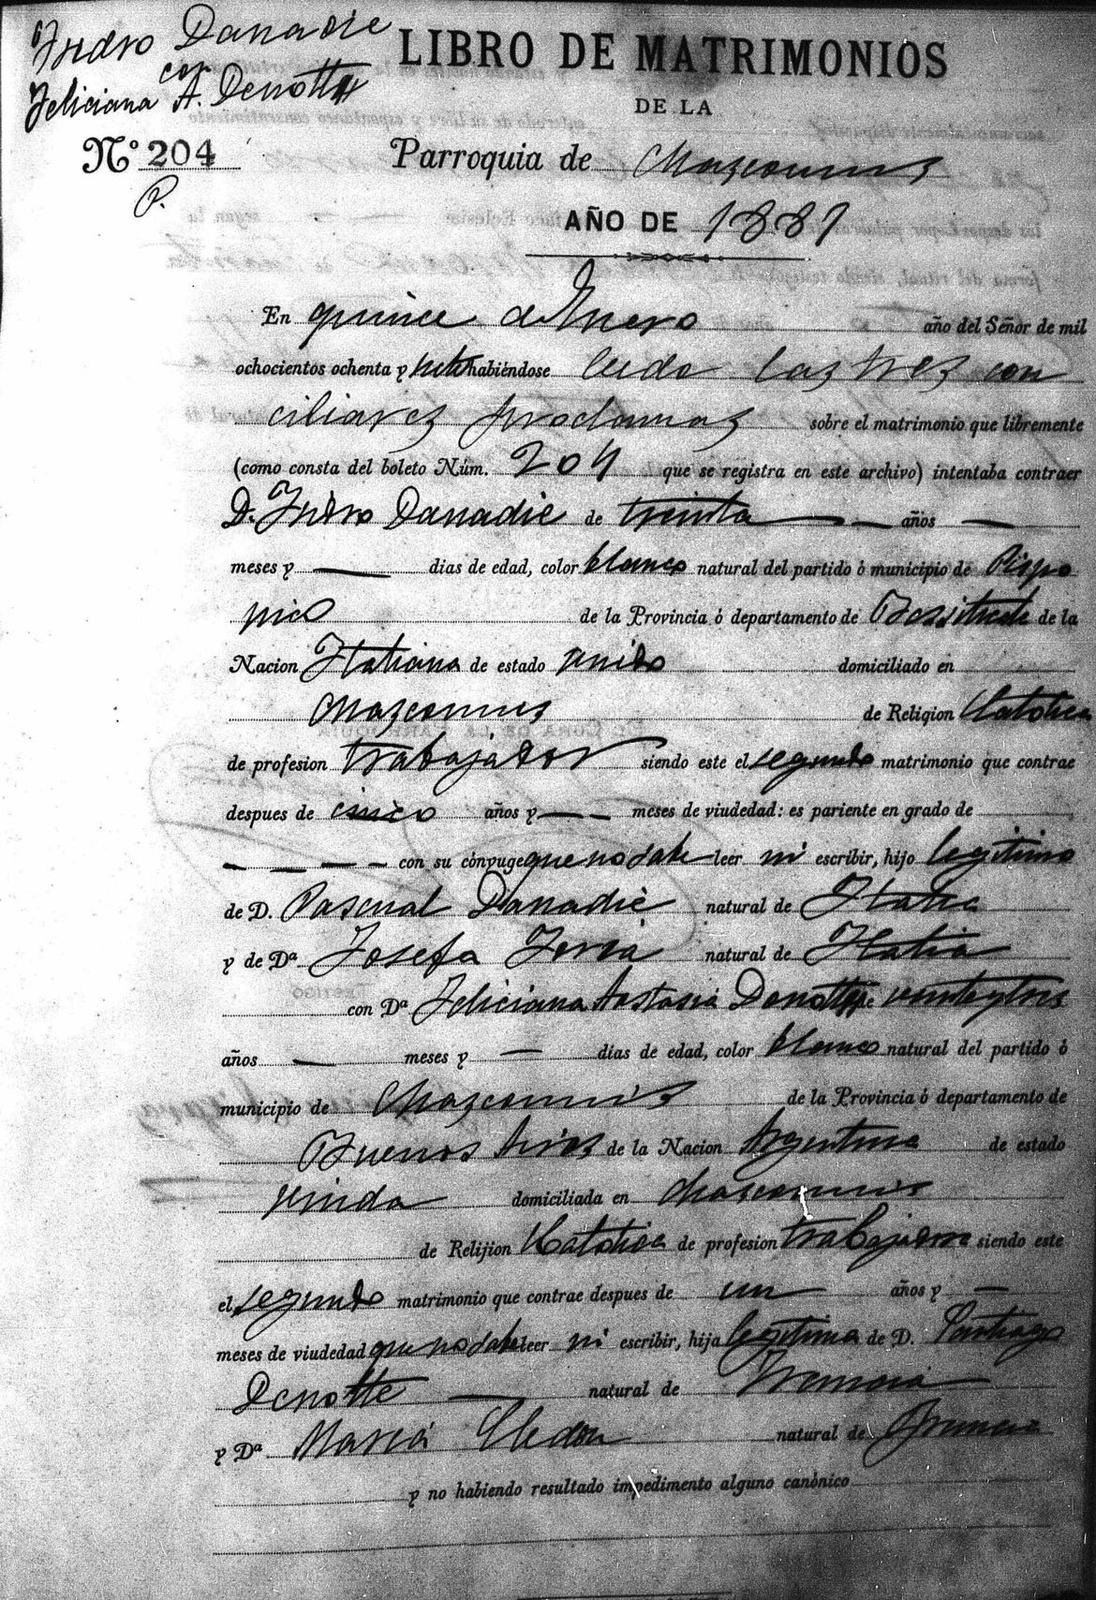 Isidro Danadie
con
Feliciana A. Denotte
LIBRO DE MATRIMONIOS
DE LA
Nº 204
Parroquia de Chascomus
P.
AÑO DE 1887
En quince de Enero año del Señor de mil
ochocientos ochenta y siete habiéndose leido las tres con
ciliares proclamas sobre el matrimonio que libremente
(como consta del boleto Núm. 204 que se registra en este archivo) intentaba contraer
D. Isidro Danadie de treinta — — años —
meses y — dias de edad, color blanco natural del partido ó municipio de
de la Provincia ó departamento de de la
Nacion Italiana de estado viudo domiciliado en
Chascomus de Religion Catolica
de profesion trabajador siendo este el segundo matrimonio que contrae
despues de cinco años y — — meses de viudedad: es pariente en grado de
— — — — con su cónyuge que no sabe leer ni escribir, hijo legitimo
de D. Pascual Danadie natural de Italia
y de Dª Josefa natural de Italia
con Dª Feliciana Anastasia Denotte de veinte y tres
años — meses y — dias de edad, color blanco natural del partido ó
municipio de Chascomus de la Provincia ó departamento de
Buenos Aires de la Nacion Argentina de estado
viuda domiciliada en Chascomus
de Relijion Catolica de profesion trabajadora siendo este
el segundo matrimonio que contrae despues de un años y —
meses de viudedad que no sabe leer ni escribir, hija legitima de D. Santiago
Denotte — natural de Francia
y Dª Maria natural de Francia
y no habiendo resultado impedimento alguno canónico